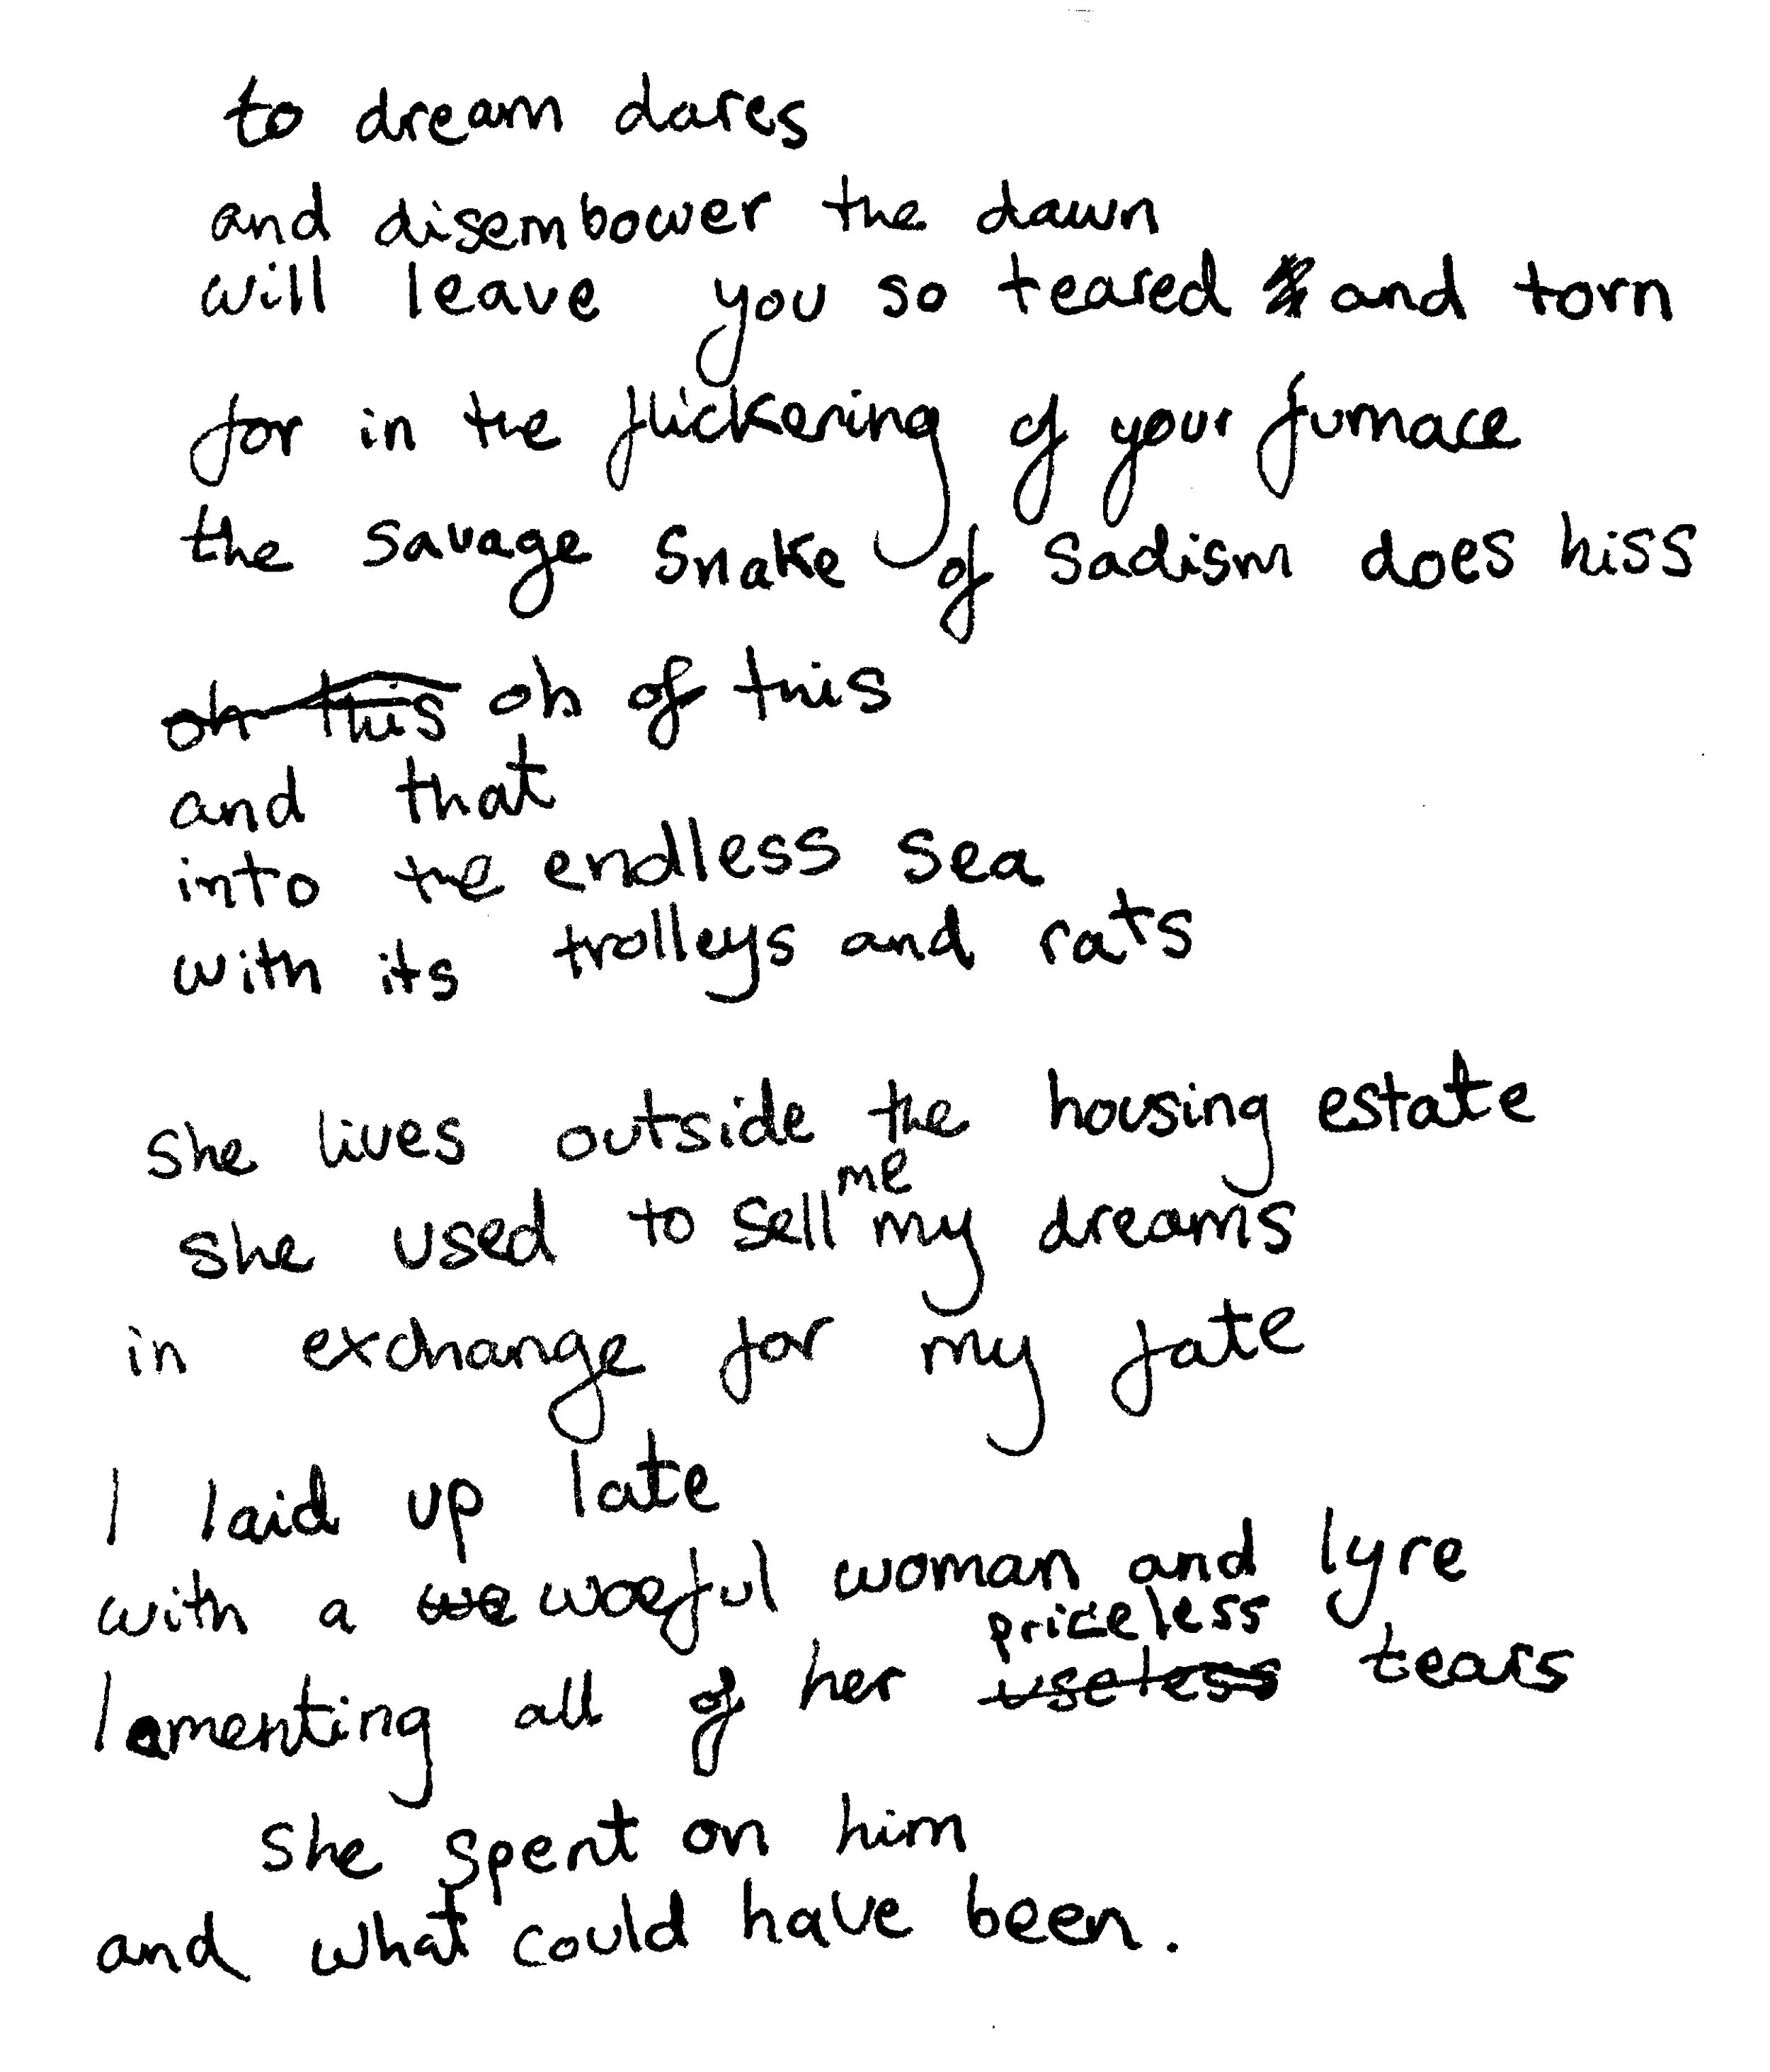 to dream dares
and disembower the dawn
will leave you so teared and torn
for in the flickering of your furnace
the savage snake of sadism does hiss
oh this oh of this
and that
into the endless sea
with its trolleys and rats
she lives outside the housing estate
she used to sell me my dreams
in exchange for my fate
I laid up late
with a we woeful woman and lyre
lamenting all of her useless priceless tears
she spent on him
and what could have been.